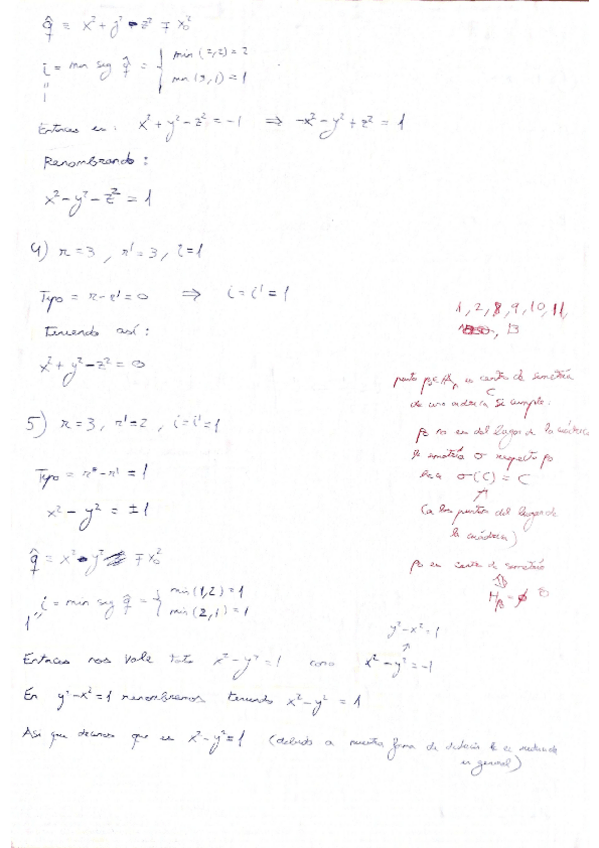 q̂ ≡ x² + y² - z² ∓ x₀²
i = min sig q̂ = { min (2,2) = 2
min (3,1) = 1
"
1
Entonces es: x² + y² - z² = -1 ⇒ -x² - y² + z² = 1
Renombrando:
x² - y² - z² = 1
4) r = 3, r' = 3, i = 1
Tipo = r - r' = 0 ⇒ i = i' = 1
Teniendo así:
x² + y² - z² = 0
5) r = 3, r' = 2, i = i' = 1
Tipo = r - r' = 1
x² - y² = ±1
q̂ = x² - y² ∓ x₀²
i = min sig q̂ = { min (1,2) = 1
min (2,1) = 1
1 "
Entonces nos vale tanto x² - y² = 1 como x² - y² = -1
y² - x² = 1
↑
En y² - x² = 1 renombramos teniendo x² - y² = 1
Así que decimos que es x² - y² = 1 (debido a nuestra forma de
en general)
1, 2, 8, 9, 10, 11,
, 13
punto p₀ ∈ A, es centro de simetría
C
de una cuádrica si cumple:
p₀ no es del lugar de la cuádrica
simetría σ respecto p₀
lleva σ(C) = C
↑
(a los puntos del lugar de
la cuádrica)
p₀ es centro de simetría
⇕
H